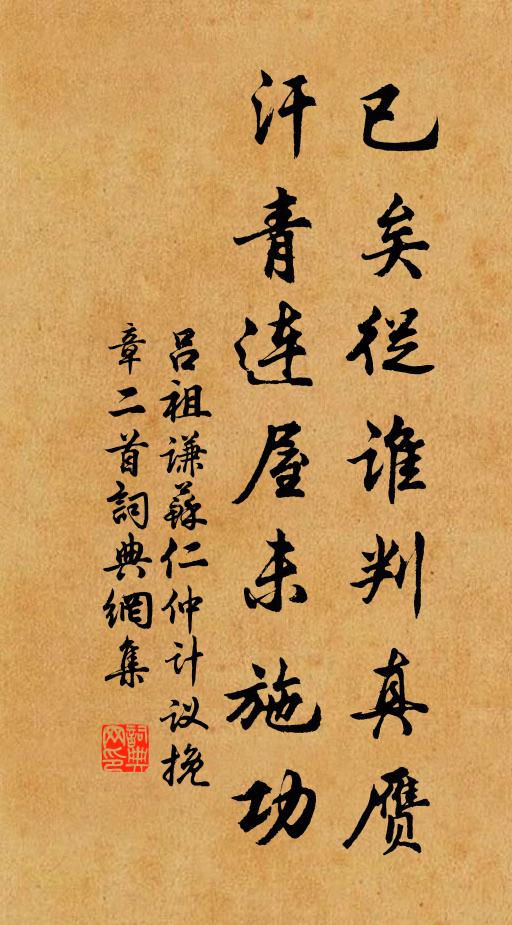 已矣從谁判真赝
汗青连屋未施功
吕祖谦蘇仁仲计议挽
章二首詞典網集
詞典网印